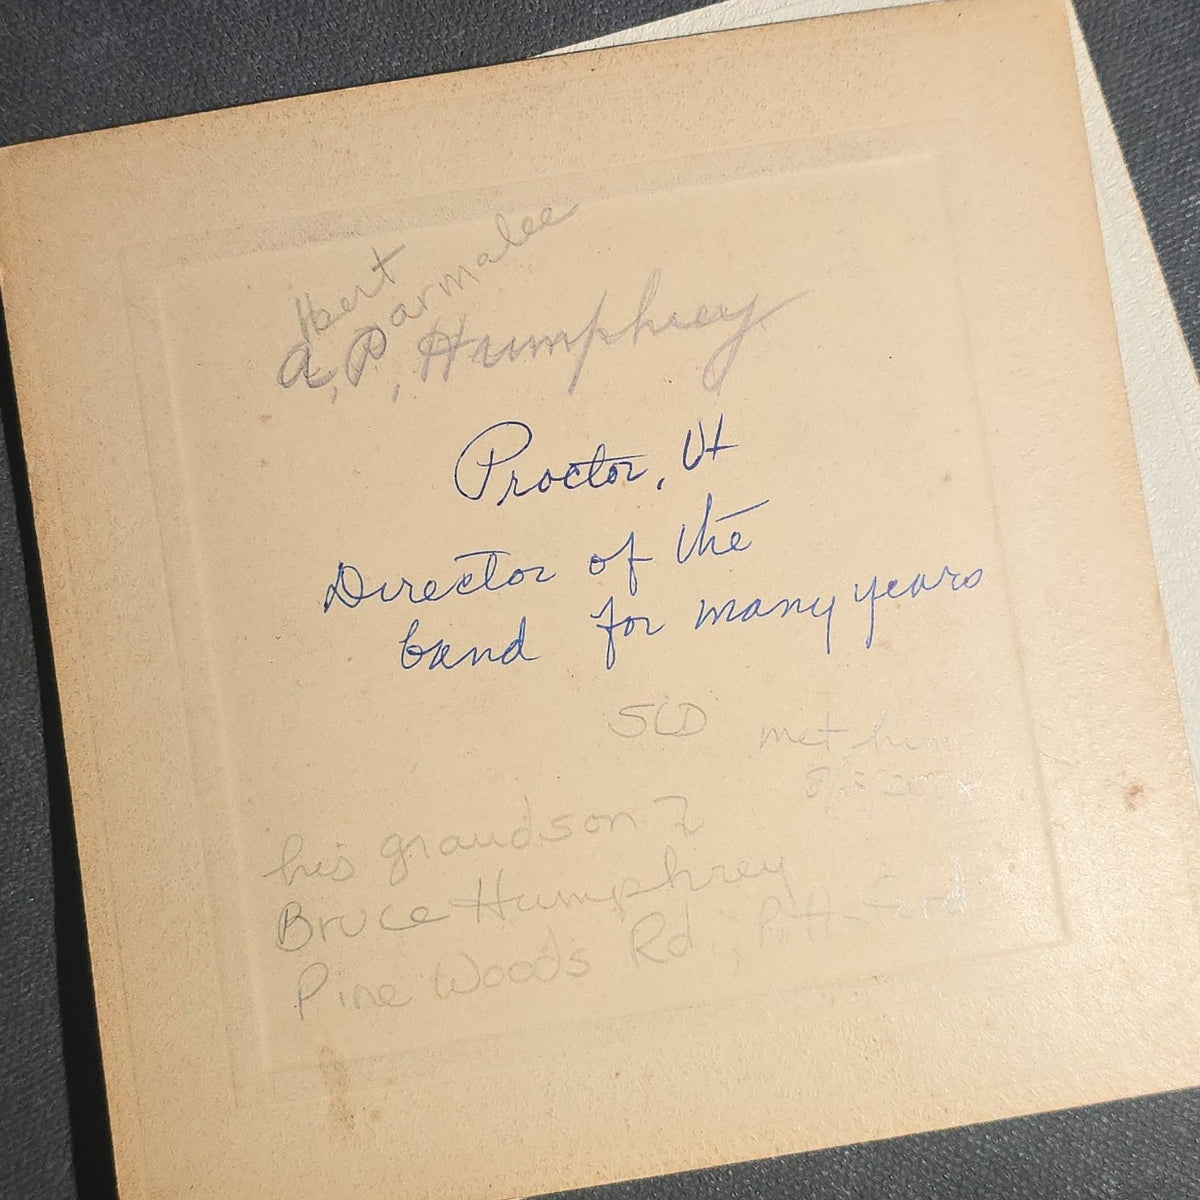 lbert Parmalee
A. P. Humphrey
Proctor, Vt
Director of the
band for many years
SCD met him
his grandson
Bruce Humphrey
Pine Woods Rd., Pittsford